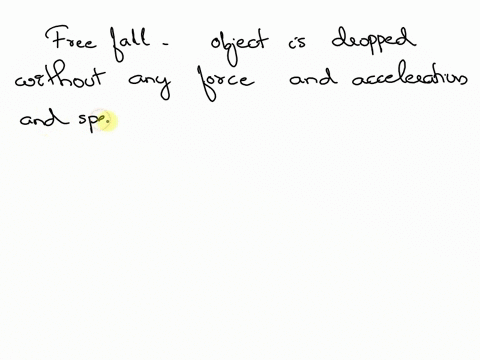 Free fall - object is dropped
without any force and accelerations
and spe